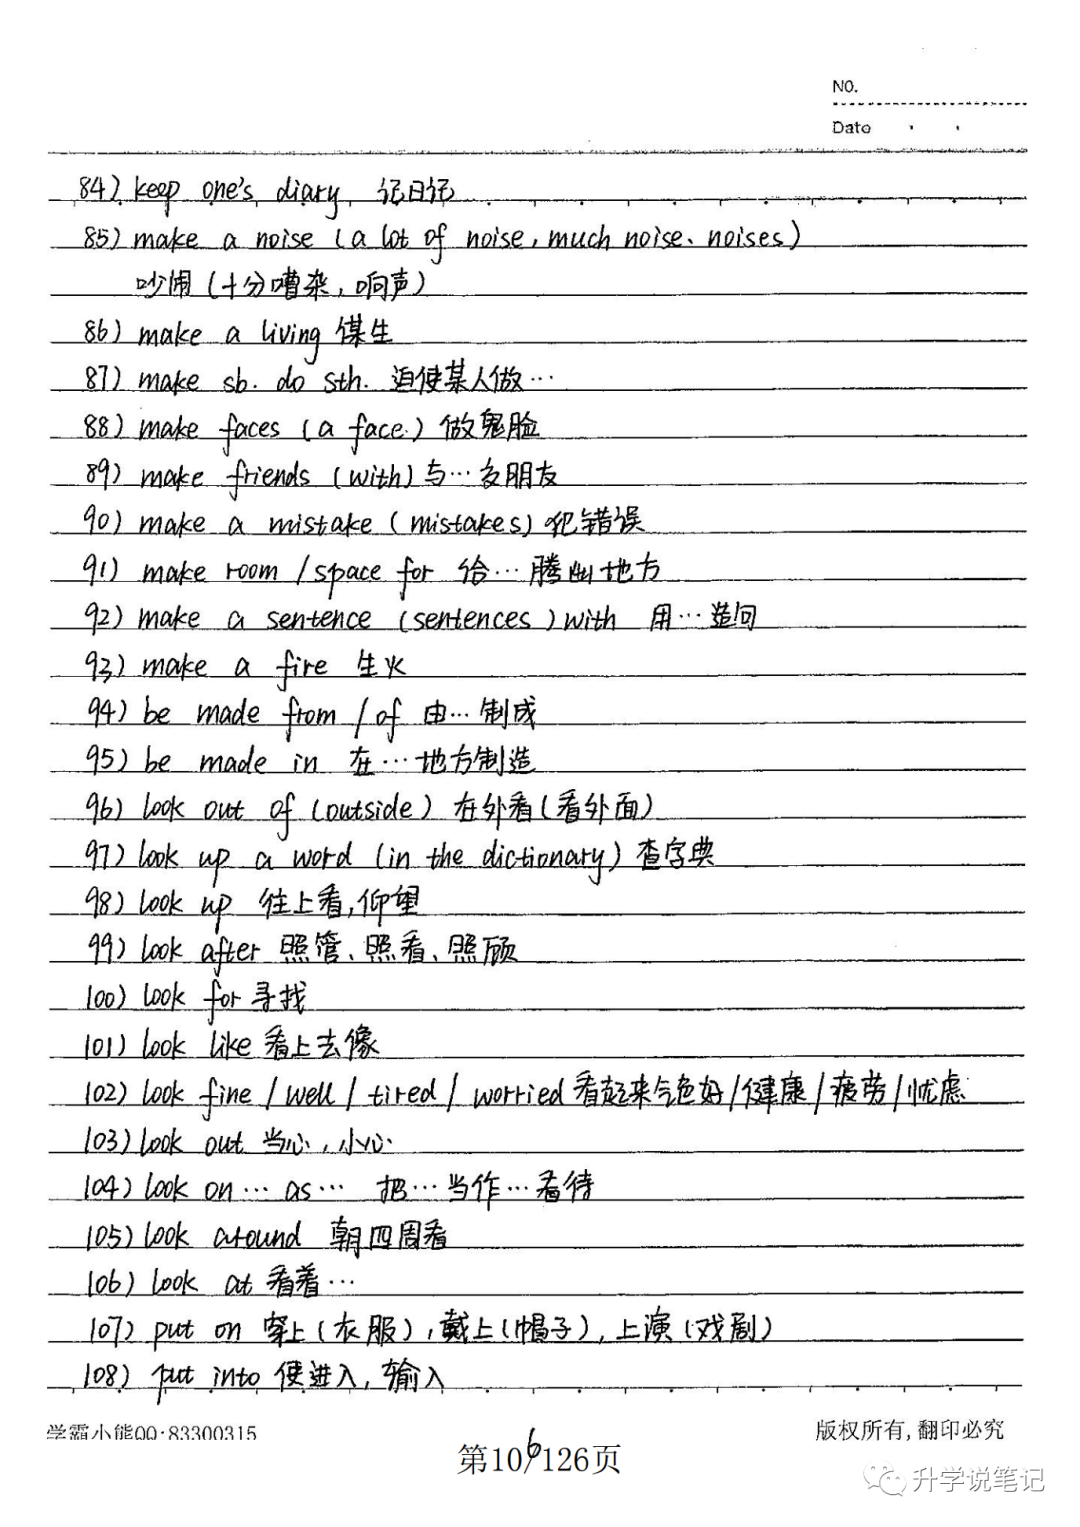 NO.
Date
84) keep one's diary 记日记
85) make a noise (a lot of noise, much noise、noises)
吵闹(十分嘈杂,响声)
86) make a living 谋生
87) make sb. do sth. 迫使某人做…
88) make faces (a face) 做鬼脸
89) make friends (with) 与…交朋友
90) make a mistake (mistakes) 犯错误
91) make room /space for 给…腾出地方
92) make a sentence (sentences) with 用…造句
93) make a fire 生火
94) be made from / of 由…制成
95) be made in 在…地方制造
96) look out of (outside) 在外看(看外面)
97) look up a word (in the dictionary) 查字典
98) look up 往上看,仰望
99) look after 照管、照看、照顾
100) look for 寻找
101) look like 看上去像
102) look fine / well / tired / worried 看起来气色好/健康/疲劳/忧虑
103) look out 当心,小心
104) look on… as… 把…当作…看待
105) look around 朝四周看
106) look at 看着…
107) put on 穿上(衣服),戴上(帽子),上演(戏剧)
108) put into 使进入,输入
学霸小熊QQ:83300315
版权所有,翻印必究
6
第10/126页
升学说笔记